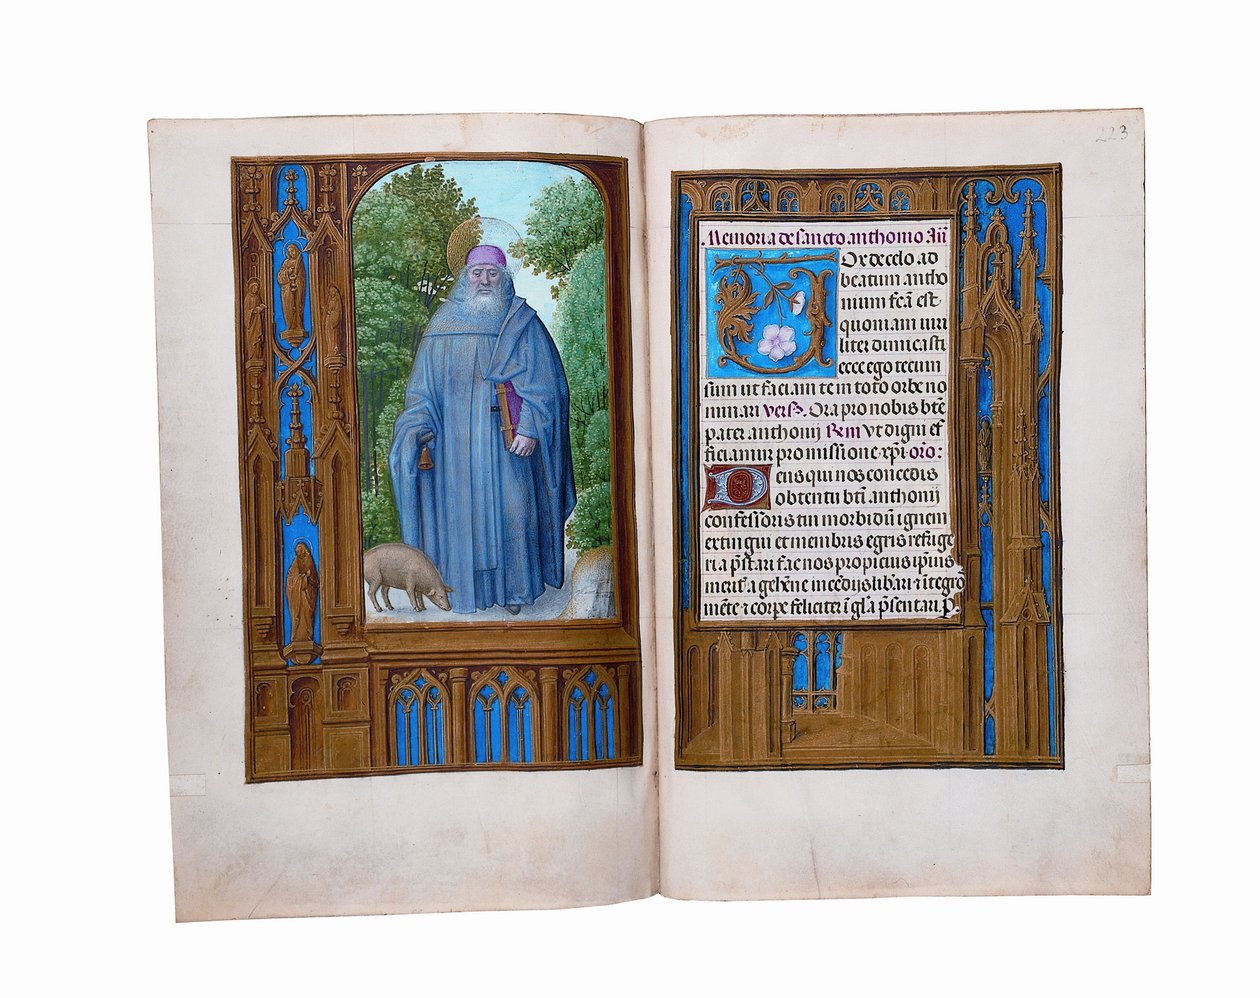 223
Memoria de sancto anthonio Añ
Vox de celo ad
beatum antho
nium fc̄a est
quoniam uiri
liter dimicasti
ecce ego tecum
sum ut faciam te in toto orbe no
minari vers⁹. Ora pro nobis bt̄e
pater anthonij Rem Vt digni ef
ficiamur promissione xp̄i orō:
Deus qui nos concedis
obtentu bt̄i anthonij
confessoris tui morbidū ignem
extingui et membris egris refuge
ria p̄stari fac nos propicius ip̄ius
merit̄ a gehēne incēdijs lib̄ari ⁊ ītegrō
mēte ⁊ corpe feliciter ī gl̄a p̄sentari P.